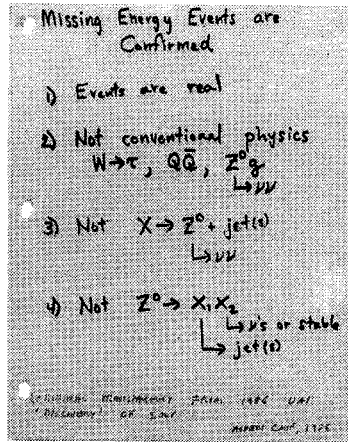 Missing Energy Events are
Confirmed
1) Events are real
2) Not conventional physics
W→τ, QQ̄, Z⁰g
↳νν
3) Not X→Z⁰+ jet(s)
↳νν
4) Not Z⁰→X₁X₂
↳ν's or stable
↳jet(s)
TRANSPARENCY FROM UA1
"DISCOVERY" OF SUSY